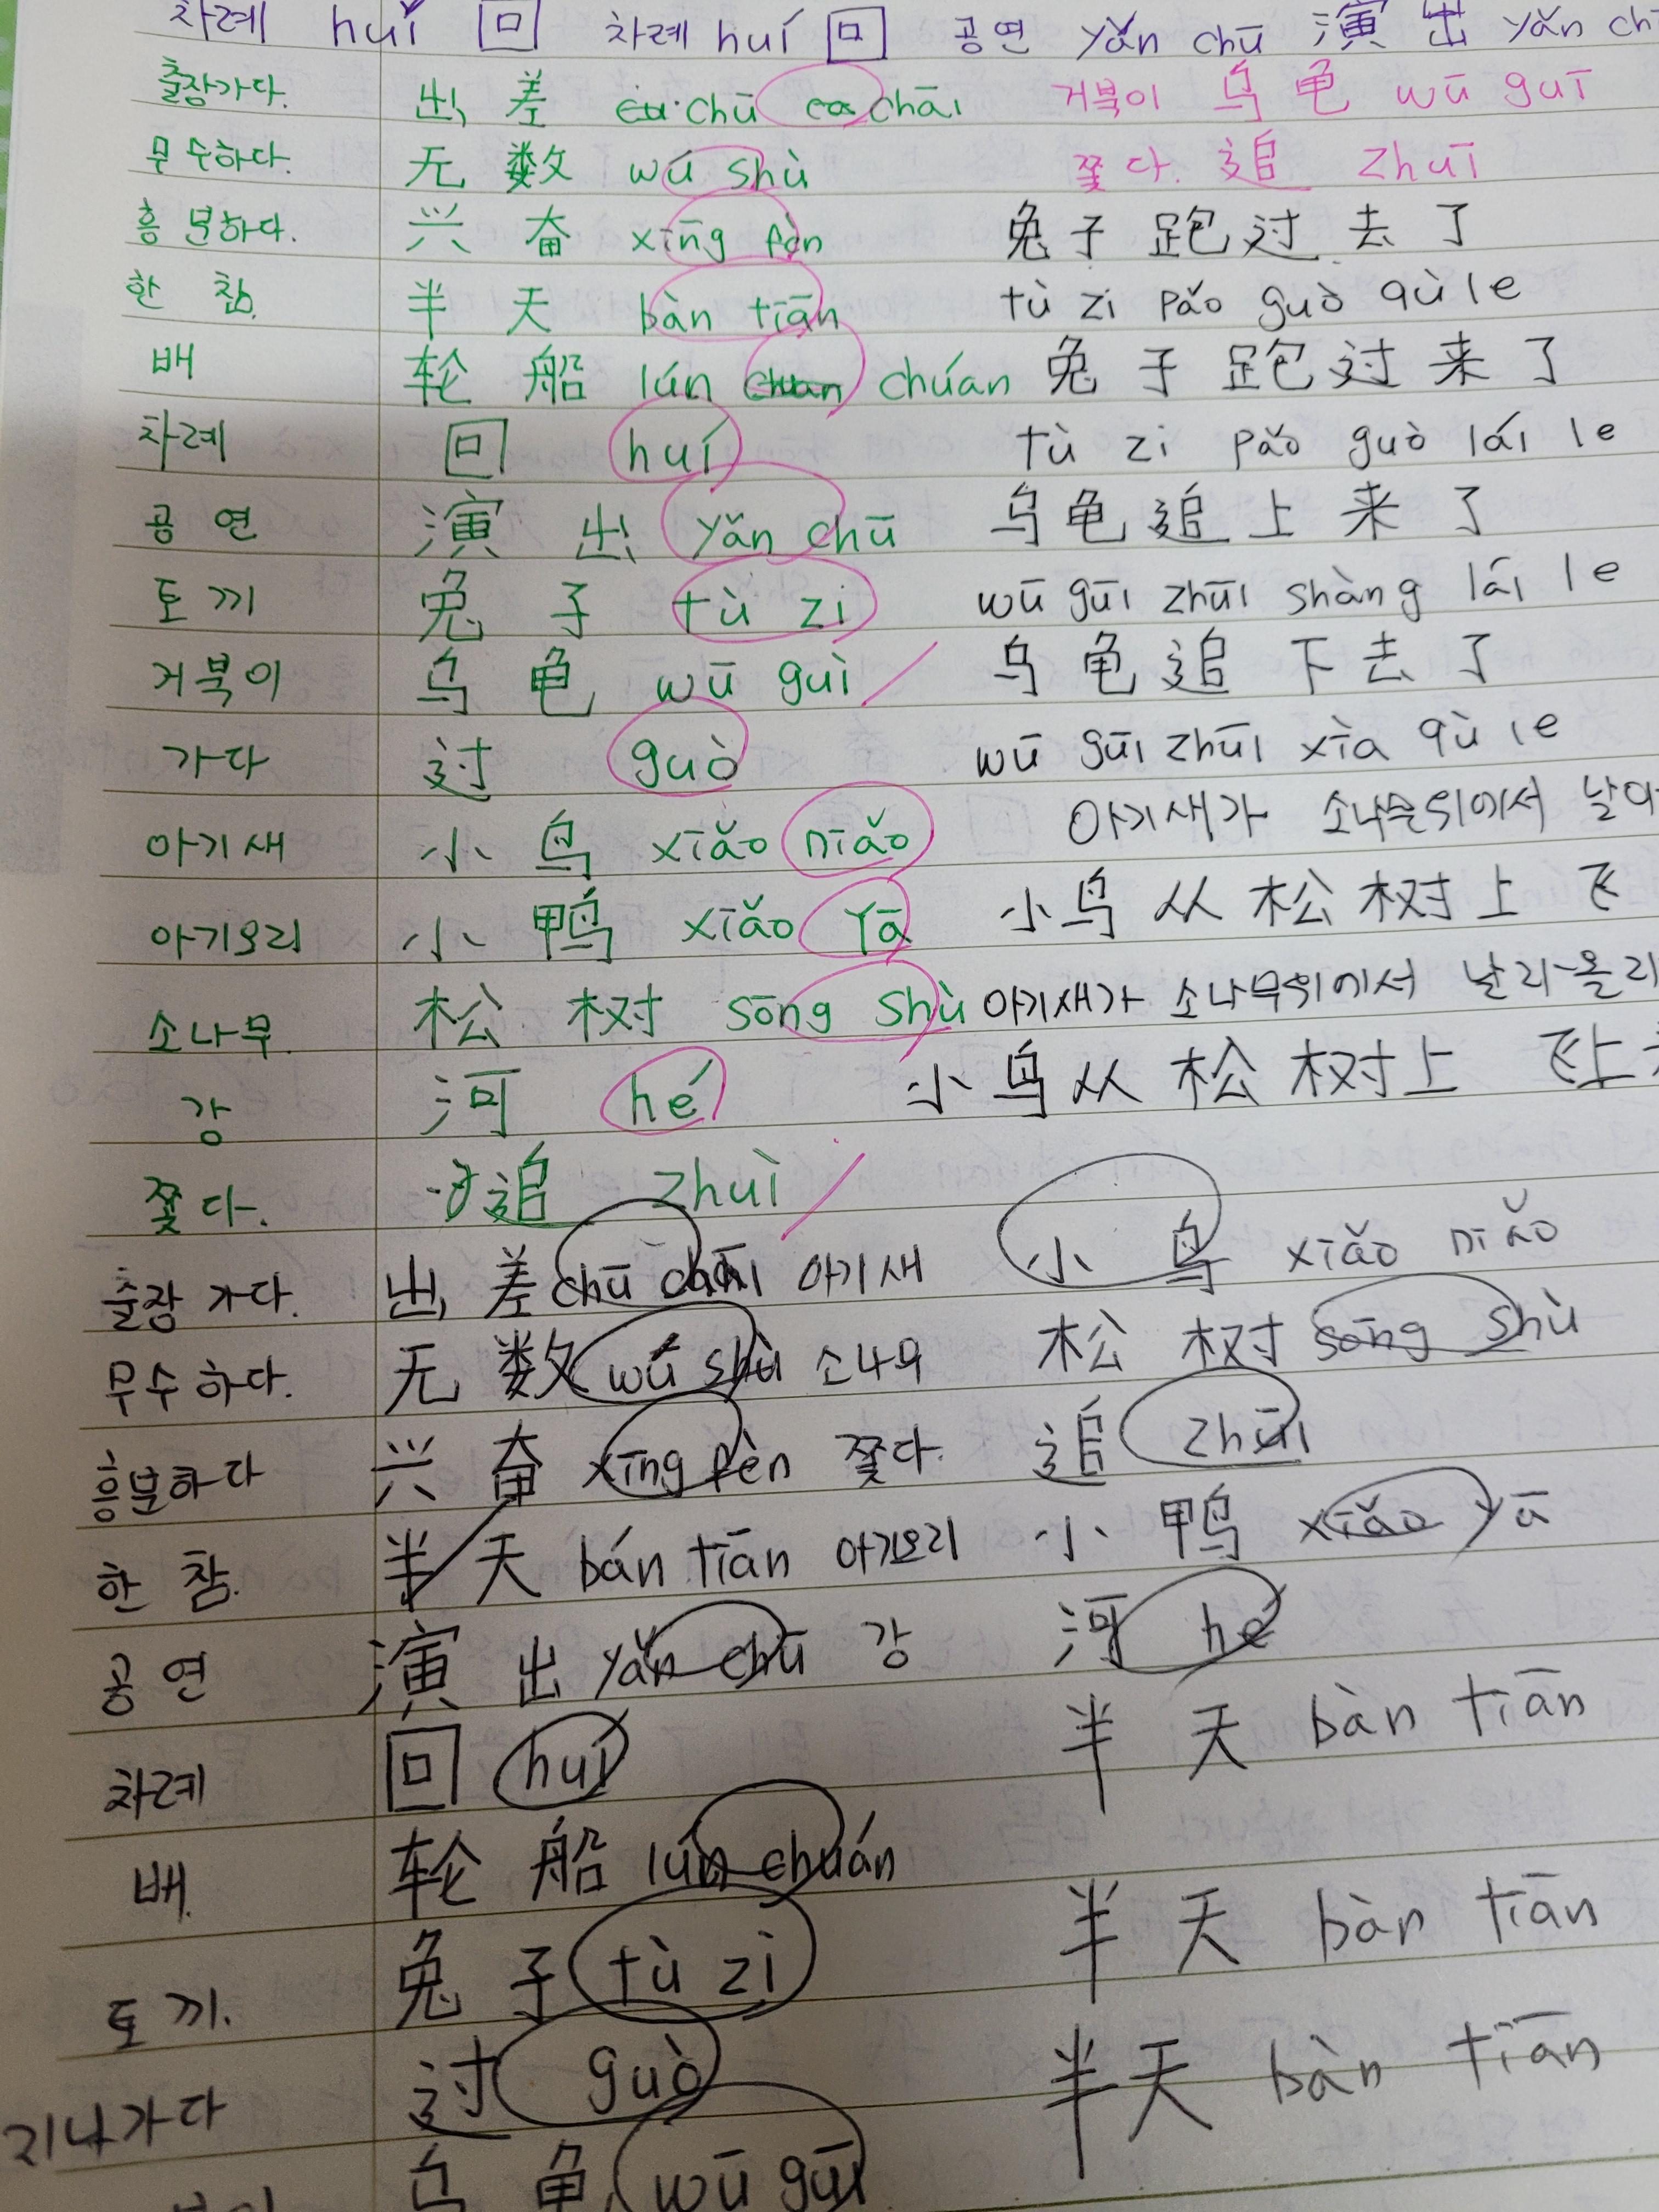 차례 huí 回 차례 huí 回 공연 yǎn chū 演出 yǎn ch
출장가다. 出差 chū chāi 거북이 乌龟 wū guī
무수하다. 无数 wú shù 쫓다. 追 zhuī
흥분하다. 兴奋 xīng fèn 兔子跑过去了
한참. 半天 bàn tiān tù zi pǎo guò qù le
배 轮船 lún chuán 兔子跑过来了
차례 回 huí tù zi pǎo guò lái le
공연 演出 yǎn chū 乌龟追上来了
토끼 兔子 tù zi wū guī zhuī shàng lái le
거북이 乌龟 wū guì 乌龟追下去了
가다 过 guò wū guī zhuī xià qù le
아기새 小鸟 xiǎo niǎo 아기새가 소나무위에서 날아
아기오리 小鸭 xiǎo yā 小鸟从松树上飞
소나무 松树 sōng shù 아기새가 소나무위에서 날라올라
강 河 hé 小鸟从松树上飞上
쫓다. 追 zhuì
출장가다. 出差 chū chāi 아기새 小鸟 xiǎo niǎo
무수하다. 无数 wú shù 소나무 松树 sōng shù
흥분하다 兴奋 xīng fèn 쫓다. 追 zhuī
한참. 半天 bán tiān 아기오리 小鸭 xiǎo yā
공연 演出 yǎn chū 강 河 hé
차례 回 huí 半天 bàn tiān
배. 轮船 lún chuán
토끼. 兔子 tù zi 半天 bàn tiān
지나가다 过 guò 半天 bàn tiān
乌龟 wū guī